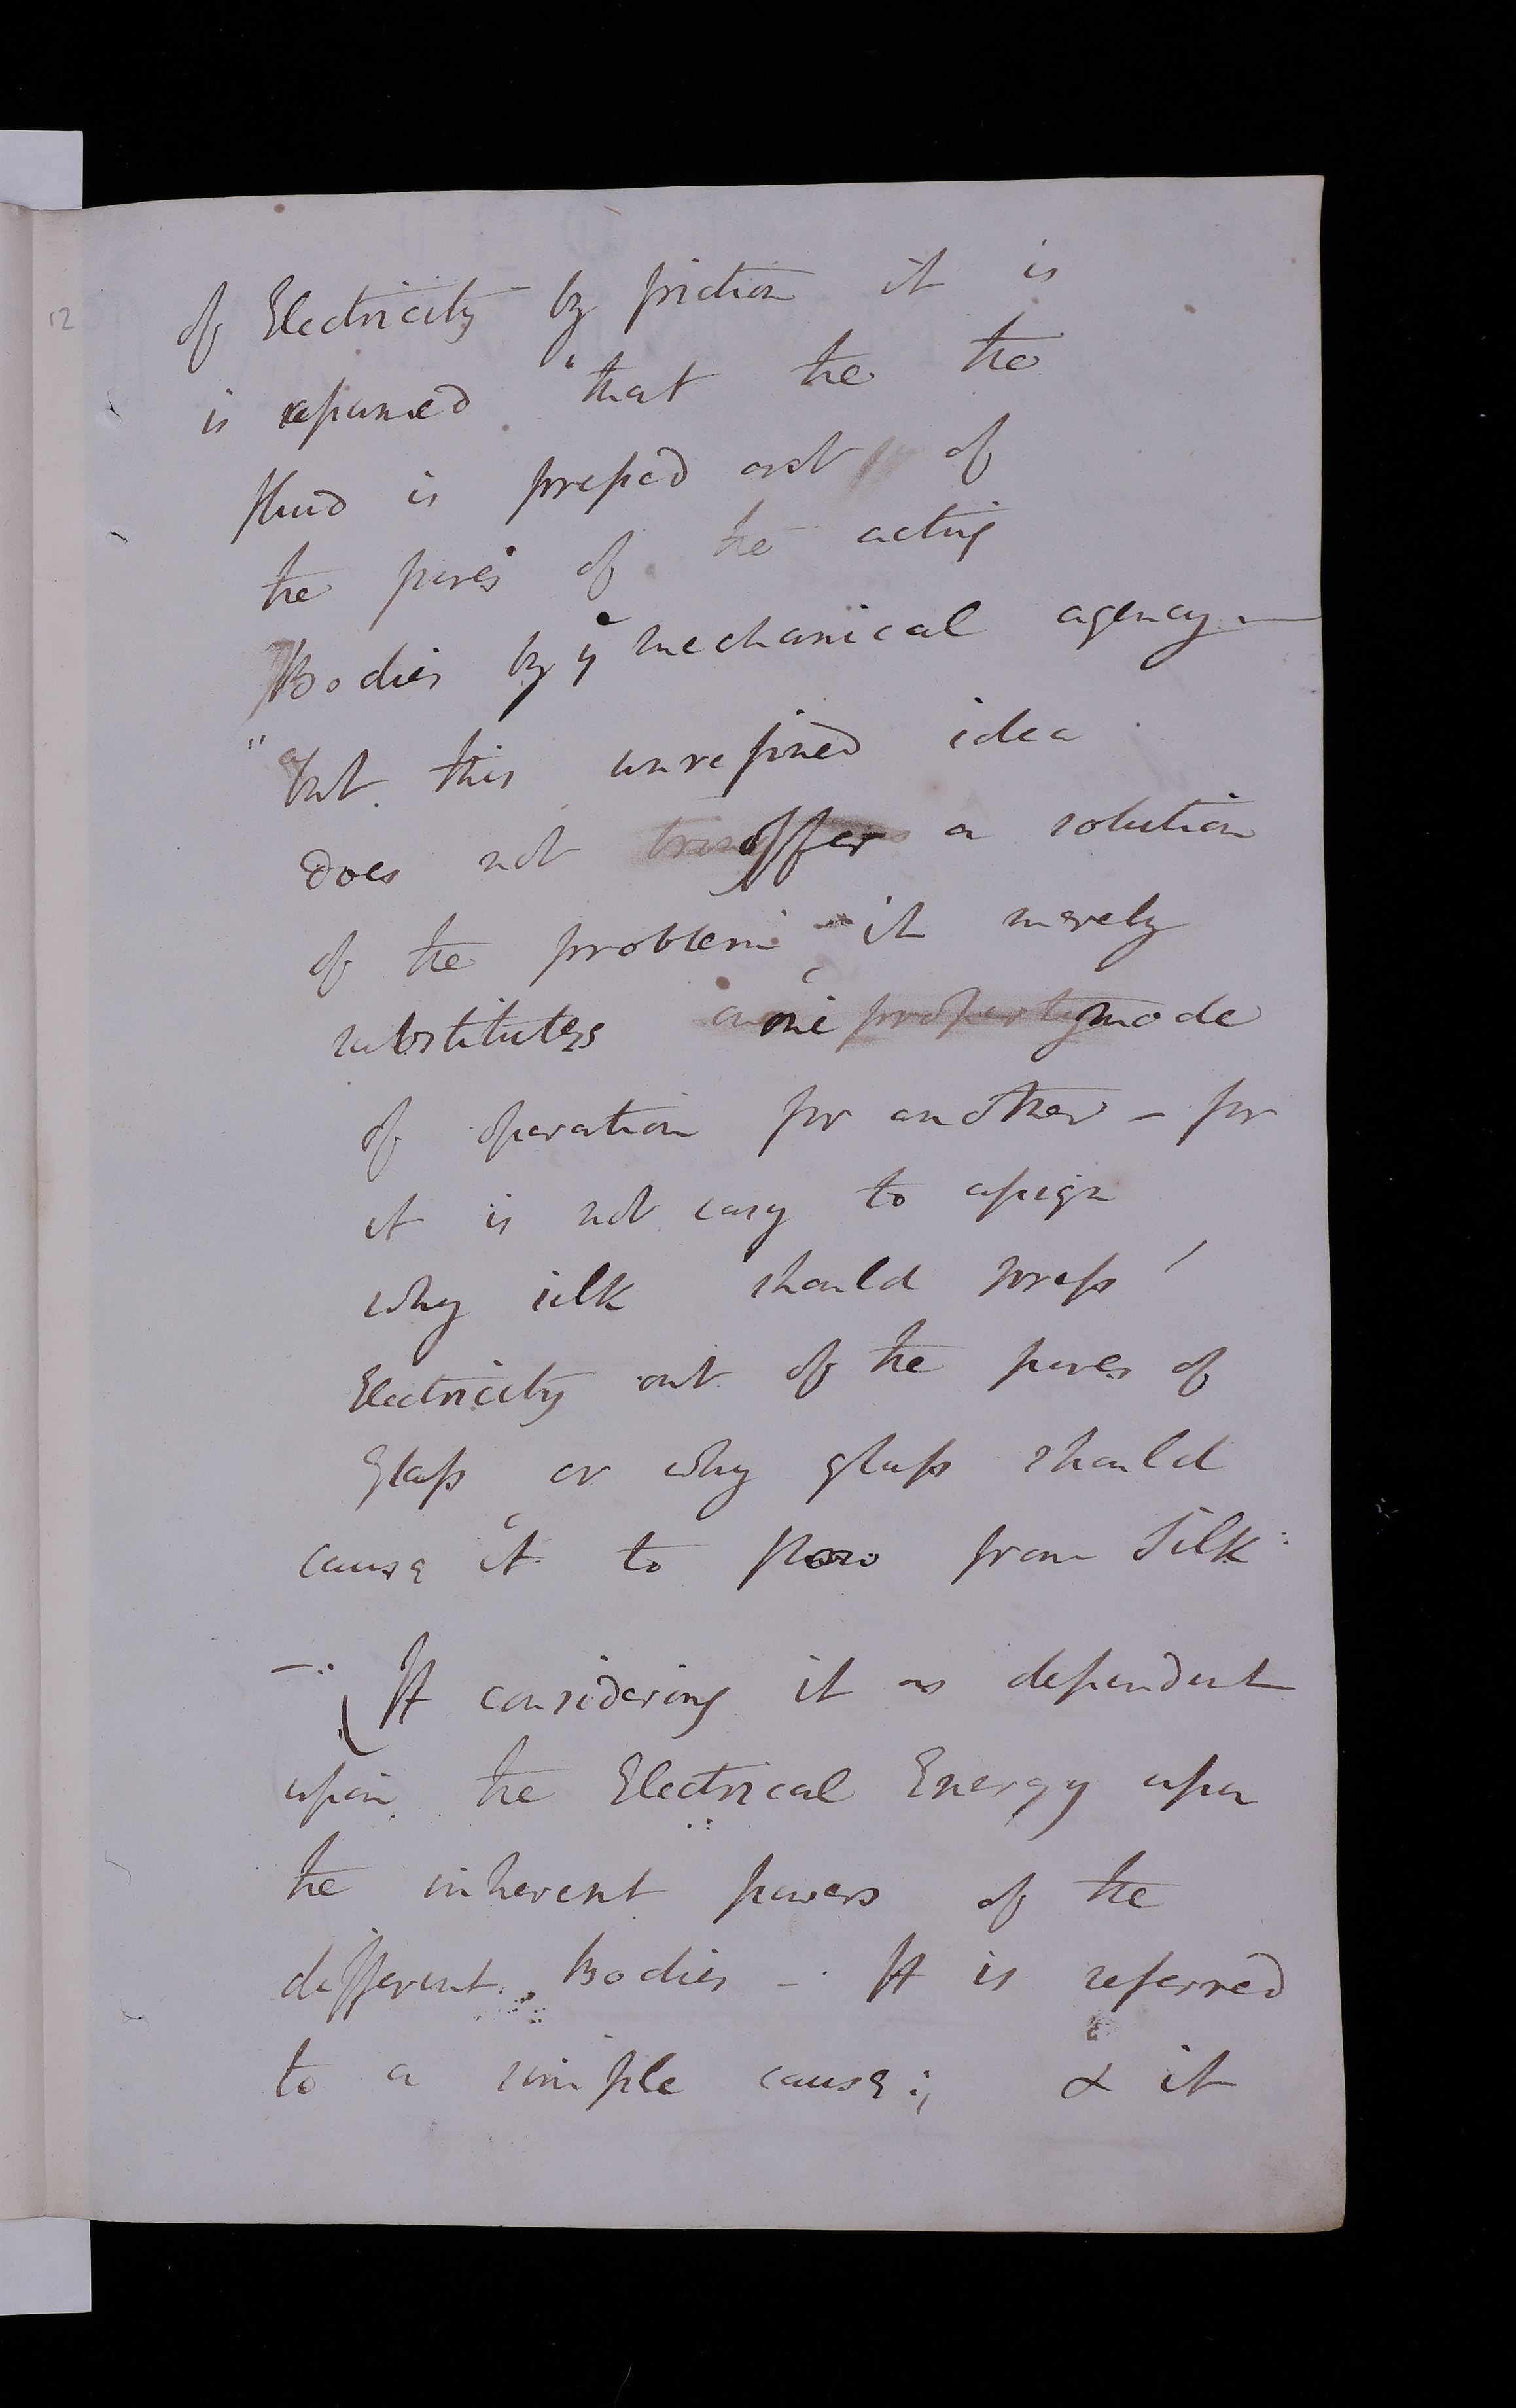 12
of Electricity by friction it is
is assumed that the the
fluid is pressed out of
the pores of the acting
Bodies by ye mechanical agency. —
"but this unrefined idea
does not offer a solution
of the problem - it merely
substitutes one property mode
of operation for another - for
it is not easy to assign
why silk should press
Electricity out of the pores of
Glass or why glass should
cause it to flow from Silk:
— It considering it as dependent
upon the Electrical Energy upon
the inherent powers of the
different Bodies -. It is referred
to a simple cause; & it